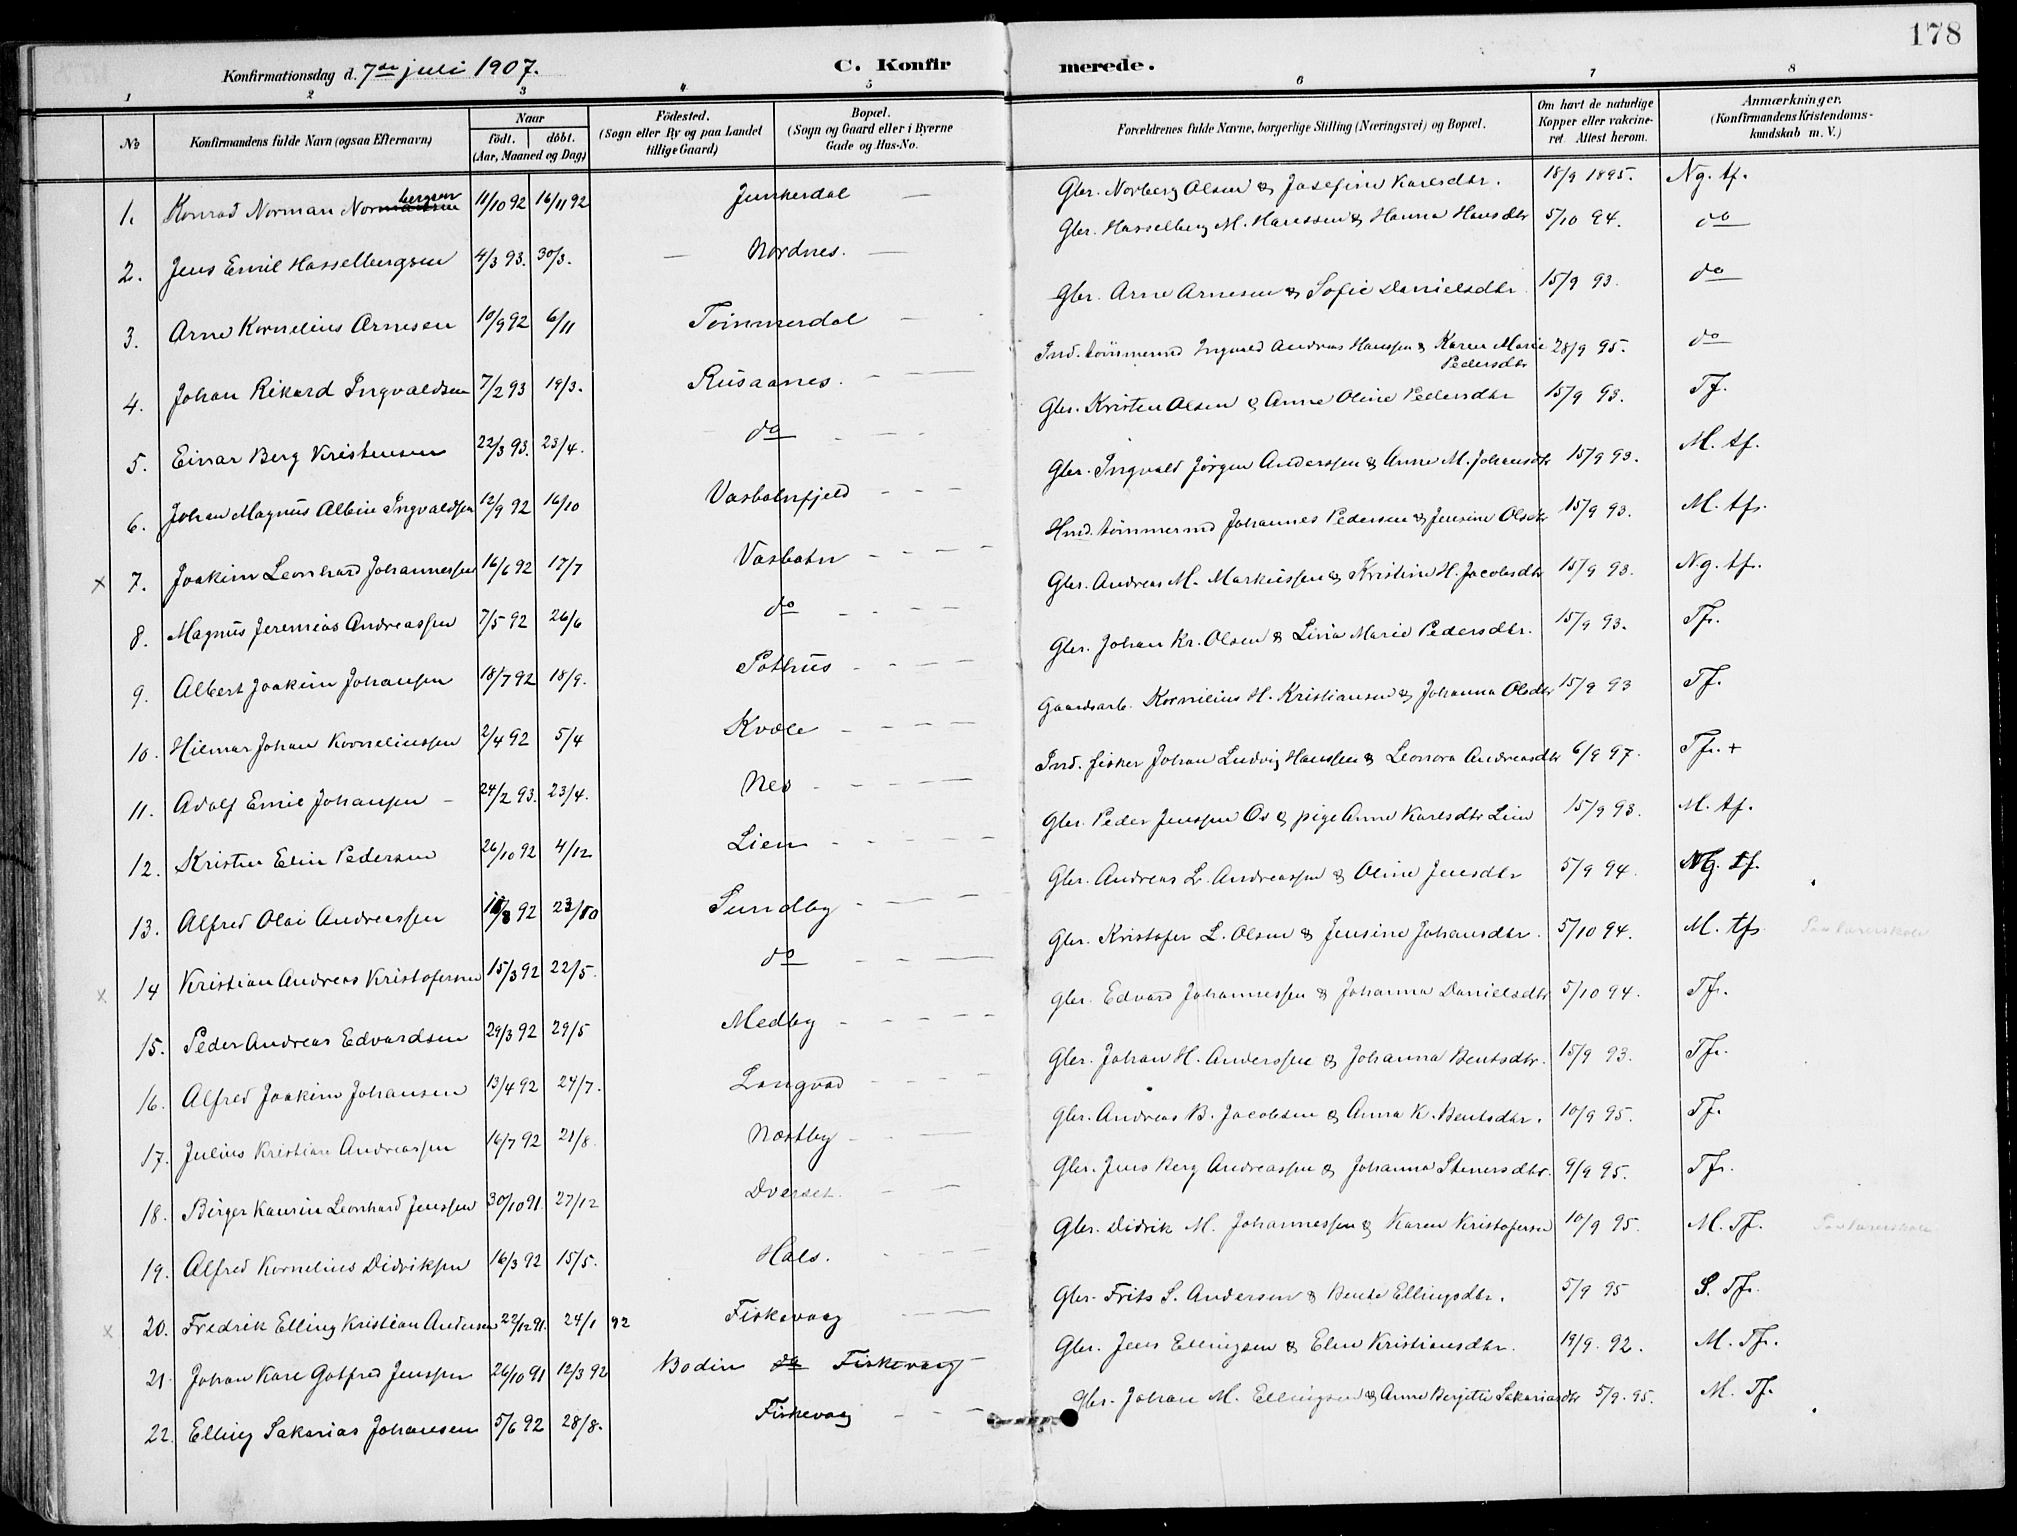 178
Konfirmationsdag d. 7de juli 1907.
C. Konfirmerede.
1 2 3 4 5 6 7 8
No
Konfirmandens fulde Navn (ogsaa Efternavn)
Naar
födt. döbt.
(Aar, Maaned og Dag)
Födested.
(Sogn eller By og paa Landet
tillige Gaard)
Bopæl.
(Sogn og Gaard eller i Byerne
Gade og Hus-No.
Forældrenes fulde Navne, borgerlige Stilling (Næringsvei) og Bopæl.
Om havt de naturlige
Kopper eller vakcine-
ret. Attest herom.
Anmærkninger.
(Konfirmandens Kristendoms-
kundskab m. V.)
1. Konrad Norman Norbergsen 11/10 92 16/11 92 Junkerdal — Gbr. Norberg Olsen & Josefine Karlsdtr. 18/9 1895. Ng. tf.
2. Jens Emil Hasselbergsen 4/3 93. 30/3. — Nordnes. — Gbr. Hasselberg M. Hanssen & Hanna Hansdtr 5/10 94. do
3. Arne Kornelius Arnesen 10/9 92 6/11 Tømmerdal — Gbr. Arne Arnesen & Sofie Danielsdtr 15/9 93. do
4. Johan Rikard Ingvaldsen 7/2 93 19/3. Rusaanes. — Ind. tømmermd Ingvald Andreas Hanssen & Karen Marie Pedersdtr 28/9 95. do
5. Einar Berg Kristensen 22/3 93. 23/4. do — Gbr. Kristen Olsen & Anne Oline Pedersdtr 15/9 93. Tf.
6. Johan Magnus Albin Ingvaldsen 12/9 92 16/10 Vasbotnfjeld — Gbr. Ingvald Jørgen Anderssen & Anne M. Johansdtr 15/9 93. M. tf.
x 7. Joakim Leonhard Johannessen 16/6 92 17/7 Vasbotn — Hmd. tømmermd Johannes Pedersen & Jensine Olsdtr 15/9 93. M. tf.
8. Magnus Jeremias Andreassen 7/5 92 26/6 do — Gbr. Andreas M. Markussen & Kristine H. Jacobsdtr 15/9 93. Ng. tf.
9. Albert Joakim Johansen 18/7 92 18/9. Pothus — Gbr. Johan Kr. Olsen & Lina Marie Pedersdtr. 15/9 93. Tf.
10. Hilmar Johan Korneliussen 2/4 92 5/4 Kvæle — Gaardsarb. Kornilius H. Kristiansen & Johanna Olsdtr 15/9 93 Tf.
11. Adolf Emil Johansen — 24/2 93. 23/4. Nes — Ind. fisker Johan Ludvig Hanssen & Leonora Andreasdtr 6/9 97. Tf. +
12. Kristen Elin Pedersen 26/10 92 4/12 Lien — Gbr. Peder Jenssen Os & pige Anne Karlsdtr Lien 15/9 93. M. tf.
13. Alfred Olai Andreassen 11/8 92 23/10 Sundby — Gbr. Andreas L. Andreassen & Oline Jensdtr 5/9 94. Ng. tf.
x 14 Kristian Andreas Kristofersen 15/3 92 22/5. do — Gbr. Kristofer L. Olsen & Jensine Johansdtr. 5/10 94. M. tf.
15. Peder Andreas Edvardsen 29/3 92 29/5 Medby — Gbr. Edvard Johannessen & Johanna Danielsdtr 5/10 94. Tf.
16. Alfred Joakim Johansen 13/4 92 24/7. Langvad — Gbr. Johan H. Anderssen & Johanna Bentsdtr. 15/9 93. Tf.
17. Julius Kristian Andreassen 16/7 92 21/8. Næstby — Gbr. Andreas B. Jacobsen & Anna K. Bentsdtr. 10/9 95. Tf.
18. Birger Kaurin Leonhard Jenssen 30/10 91. 27/12 Dverset. — Gbr. Jens Berg Andreassen & Johanna Stenersdtr. 9/9 95. Tf.
19. Alfred Kornelius Didriksen 16/3 92 15/5. Hals. — Gbr. Didrik M. Johannessen & Karen Kristofersen 10/9 95. M. Tf.
x 20. Fredrik Elling Kristian Andersen 22/12 91. 24/1 92 Fiskevaag — Gbr. Frits S. Andersen & Bente Ellingsdtr. 5/9 95 S. Tf.
21. Johan Karl Gotfred Jenssen 26/10 91 12/3 92 Bodin do Fiskevaag — Gbr. Jens Ellingsen & Elen Kristiansdtr. 19/9. 92. M. Tf.
22. Elling Sakarias Johansen 5/6 92 28/8. Fiskevaag — Gbr. Johan M. Ellingsen & Anne Berjitte Sakariasdtr 5/9. 95. M. Tf.